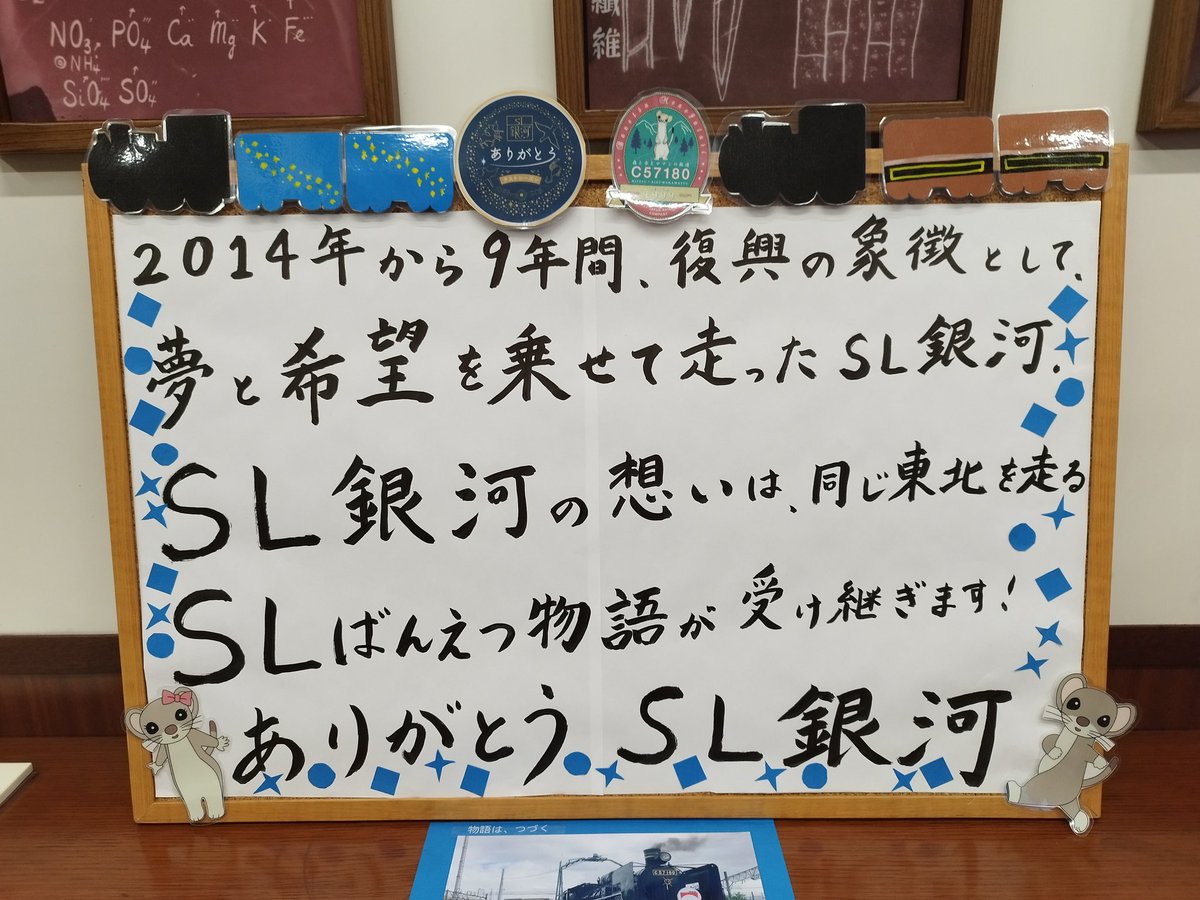 NO₃, PO₄ Ca Mg K Fe
NH₄
SiO₄ SO₄
繊
維
SL
銀河
ありがとう
C57180
2014年から9年間、復興の象徴として、
夢と希望を乗せて走ったSL銀河.
SL銀河の想いは、同じ東北を走る
SLばんえつ物語が受け継ぎます!
ありがとう SL銀河
物語は、つづく
C57180